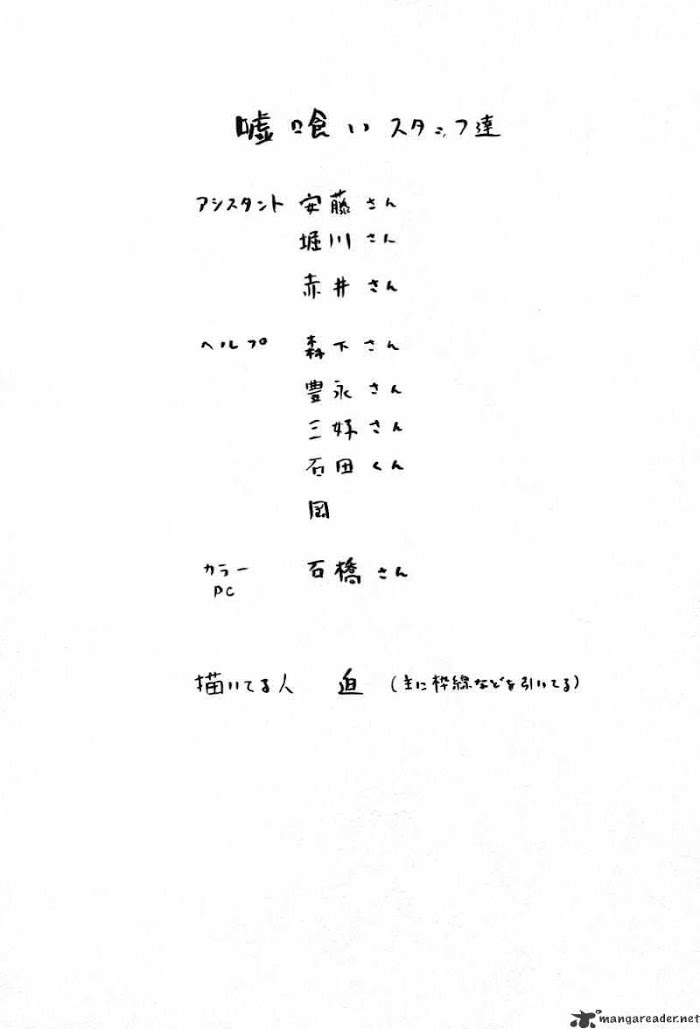 嘘喰いスタッフ達
アシスタント 安藤さん
堀川さん
赤井さん
ヘルプ 森下さん
豊永さん
三好さん
石田くん
国
カラーPC 石橋さん
描いてる人 迫 (主に枠線などを引いてる)
mangareader.net